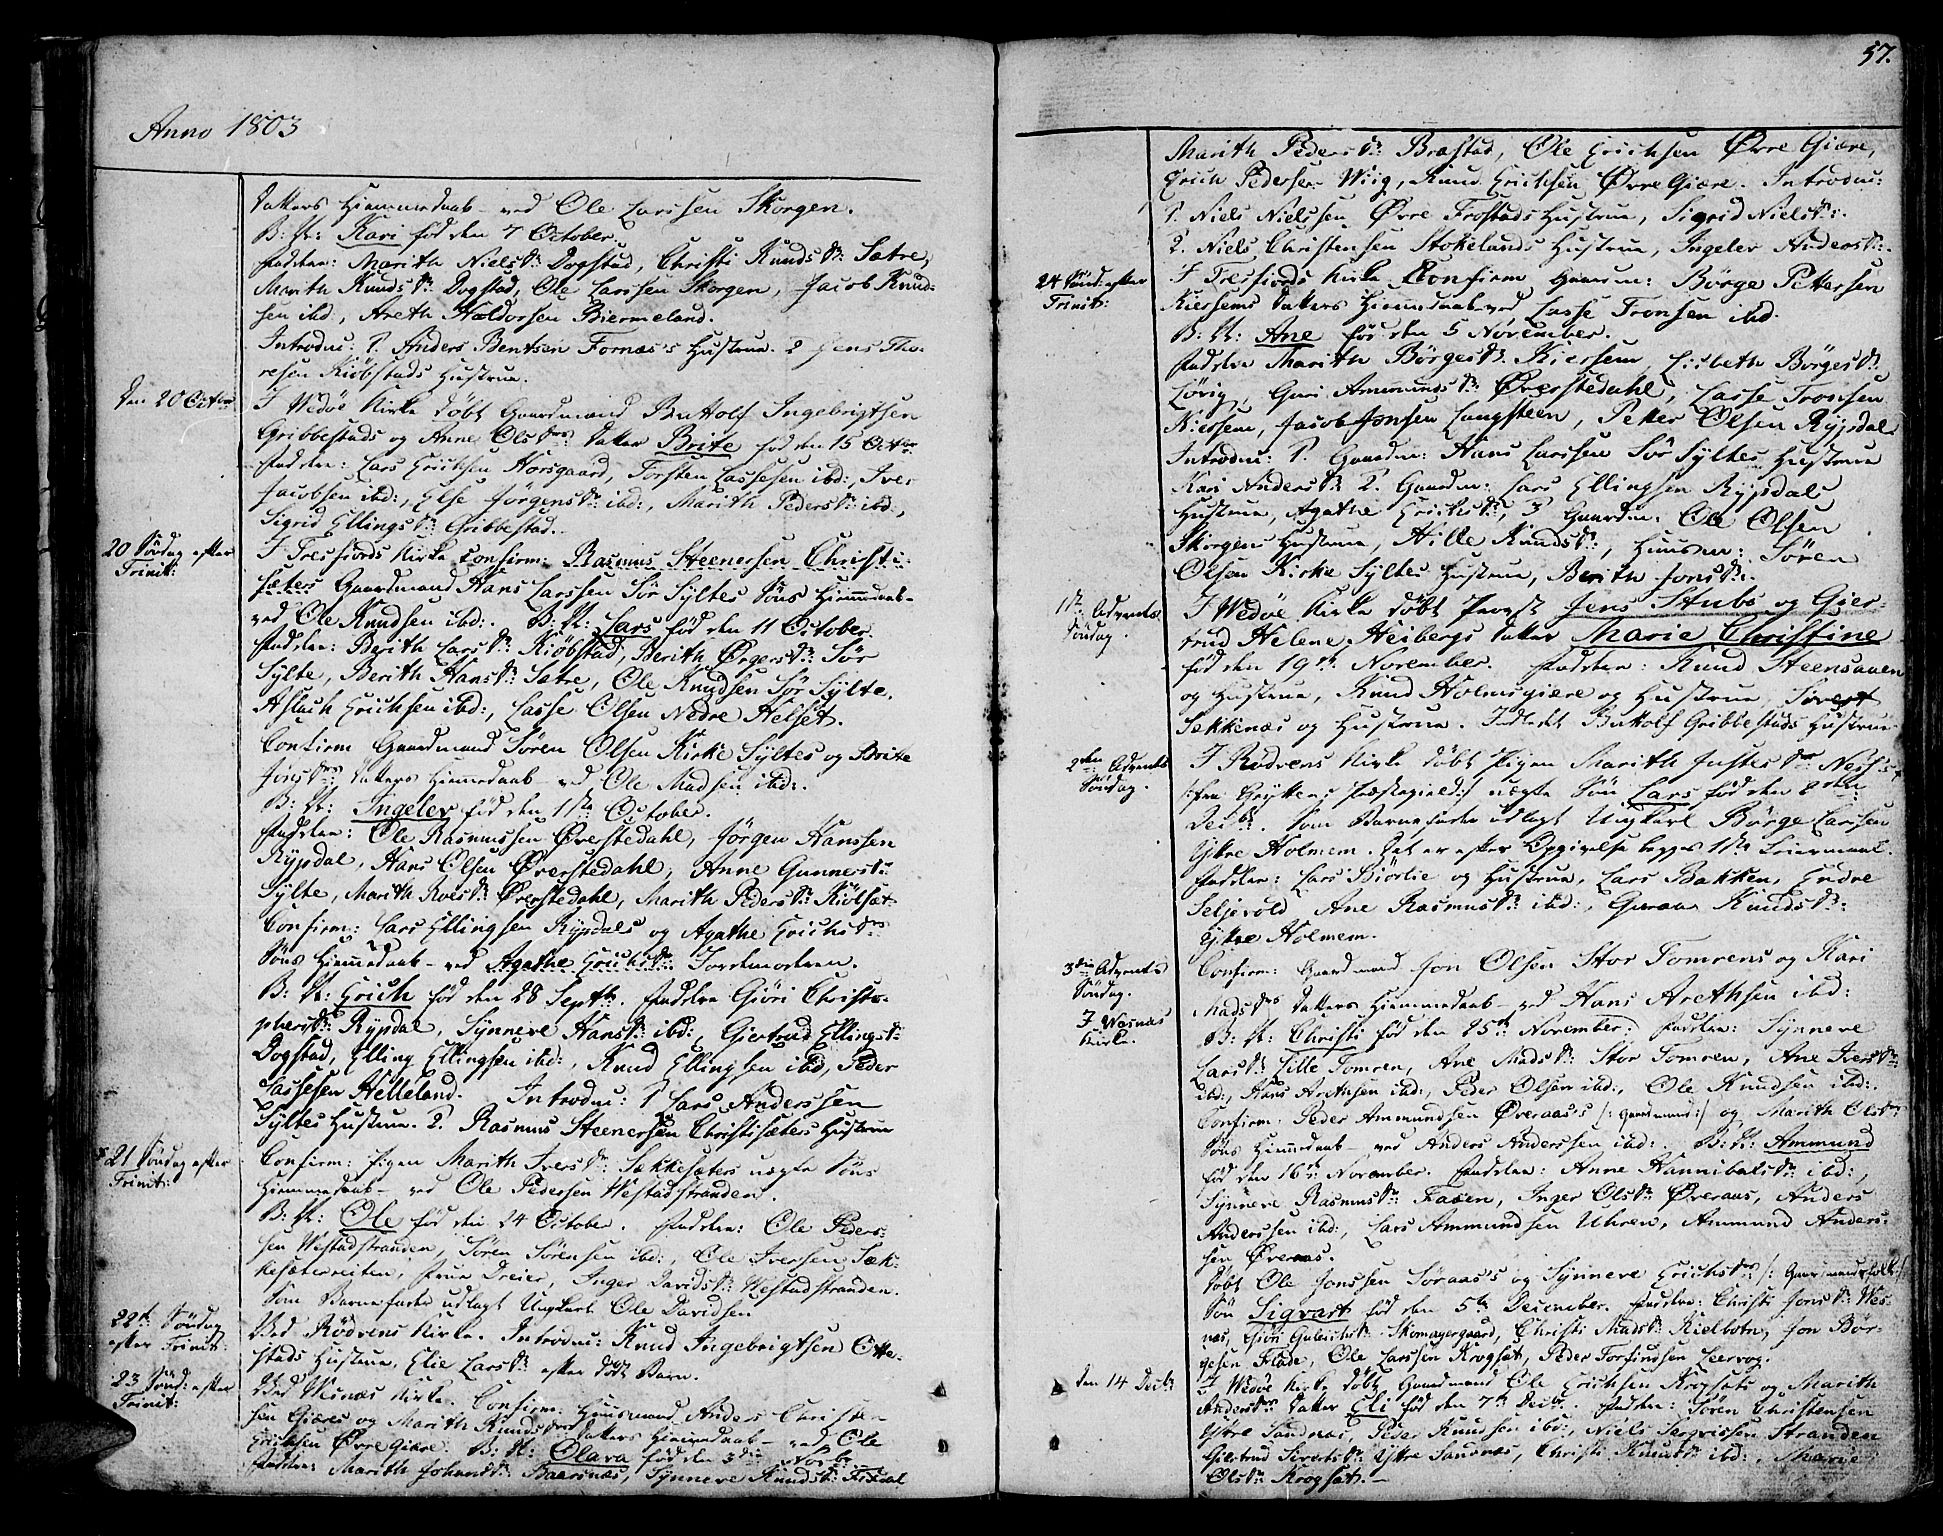 Anno 1803
Datters Hiemmedaab ved Ole Larssen Skorgen.
B: N: Kari fød den 7 October.
Faddere: Marith Nielsdr Dogstad, Christi Knudsdr Sætre,
Marith Knudsdr Dogstad, Ole Larssen Skorgen, Jacob Knud-
sen ibd:, Areth Haldorsen Biermeland.
Introduc: 1. Anders Bentsen Fornæs's Hustrue. 2 Jens Tho-
resen Kiöbstads Hustrue.
Den 20 Octbr
I Wedöe Kirke döbt Gaardmand Buttolf Ingebrigtsen
Gribbestads og Anne Olsdrs Datter Brite fød den 15 Octbr
Faddere: Lars Erichsen Horsgaard, Torsten Lassesen ibd:, Iver
Jacobsen ibd:, Else Jörgensdr ibd:, Marith Pedersdr ibd:,
Sigrid Ellingsdr Gribbestad.
20 Söndag efter
Trinit:
I Tresfiords Kirke confirm: Rasmus Steenersen Christi-
sæters Gaardmand Hans Larssen Sör Syltes Söns Hiemmedaab
ved Ole Knudsen ibd:. B: N: Lars fød den 11 October.
Faddere: Berith Larsdr Kiöbstad, Berith Örgersdr Sör
Sylte, Berith Hansdr Sætre, Ole Knudsen Sör Sylte,
Aslach Erichsen ibd:, Lasse Olsen Nedre Helset.
Confirm Gaardmand Sören Olsen Kirke Syltes og Brite
Jonsdrs Datters Hiemmedaab ved Ole Madsen ibd:.
B: N: Ingelev fød den 1ste October.
Faddere: Ole Rasmussen Överstedahl, Jörgen Hanssen
Rypdal, Hans Olsen Överstedahl, Anne Gunnersdr
Sylte, Marith Roesdr Överstedahl, Marith Pedersdr Kiölsæt.
Confirm: Lars Ellingsen Rypdals og Agathe Erichsdrs
Söns Hiemmedaab ved Agathe Erichsdr Jordemoderen.
B: N: Erich fød den 28 Septbr. Faddere Giöri Christo-
phersdr Rypdal, Synneve Hansdr ibd:, Giertrud Ellingsdr
Dogstad, Elling Ellingsen ibd:, Knud Ellingsen ibd, Peder
Lassesen Helleland. Introduc: 1 Lars Anderssen
Syltes Hustrue. 2. Rasmus Steenersen Christisæters Hustrue
21 Söndag efter
Trinit:
Confirm: Pigen Marith Iversdr Sækkesæters uægte Söns
Hiemmedaab ved Ole Pedersen Westadstranden.
B: N: Ole fød den 24 October. Faddere: Ole Peder-
sen Westadstranden, Sören Sörensen ibd:, Ole Iversen Sæk-
kesæterreiten, Frue Dreier, Inger Davidsdr Westadstranden.
Som Barnefader udlagt Ungkarl Ole Davidsen
22de Söndag
efter Trinit:
Ved Rödvens Kirke. Introduc: Knud Ingebrigtsen Otte-
stads Hustrue, Elie Larsdr efter dödt Barn.
23 Sönd: efter
Trinit:
Ved Wesnæs Kirke. Confirm: Huusmand Anders Christen-
sen Giæres og Marith Knudsdrs Datters Hiemmedaab ved Ole
Erichsen Övre Giære. B: N: Olava fød den 3die Novbr
Faddere: Marith Johansdr Baarsnæs, Synneve Knudsdr Frædal
57.
Marith Pedersdr Brastad, Ole Erichsen Övre Giære,
Erich Pedersen Wiig, Knud Erichsen Övre Giære. Introduc:
1. Niels Nielssen Övre Frostads Hustrue, Sigrid Nielsdr.
2. Niels Christensen Stokelands Hustrue, Ingeler Andersdr.
24 Sönd: efter
Trinit:
I Tresfiords Kirke Confirm Gaardm: Börge Pettersen
Kiersems Datters Hiemmedaab ved Lasse Tronsen ibd.
B: N: Ane fød den 5 November.
Faddere Marith Börgesdr Kiersem, Lisbeth Börgesdr
Lövig, Guri Ammundsdr Överstedahl, Lasse Tronsen
Kiersem, Jacob Jonsen Langsteen, Petter Olsen Rypdal.
Introduc: 1. Gaardm: Hans Larssen Sör Syltes Hustrue
Kari Andersdr 2. Gaardm: Lars Ellingsen Rypdals
Hustrue, Agathe Erichsdr, 3 Gaardm: Ole Olsen
Skorgens Hustrue, Hille Knudsdr, Huusm: Sören
Olsen Kirke Syltes Hustrue, Berith Jonsdr.
1ste Advents
Söndag.
I Wedöe Kirke döbt Provst Jens Stubs og Gier-
trud Helene Heibergs Datter Marie Christine
fød den 19de November. Faddere: Knud Steensauen
og Hustrue, Knud Holmsgiære og Hustrue, Sivert
Sækkenæs og Hustrue. Indledet Buttolf Gribbestads Hustrue
2den Advents
Söndag.
I Rödvens Kirke döbt Pigen Marith Justesdr Næss
/: fra Gryttens Præstegield :/ uægte Sön Lars fød den 8den
Decbr. Som Barnefader udlagt Ungkarl Börge Larssen
Yttre Holmem. Det er efter Opgivelse begges 1ste Leiermaal.
Faddere: Lars Biörlie og Hustrue, Lars Bakken, Endre
Seljevold Ane Rasmusdr ibd:, Guraa Knudsdr
Yttre Holmem.
3die Advents
Söndag.
I Wesnæs
Kirke.
Confirm: Gaardmand Jon Olsen Stor Tomrens og Kari
Madsdrs Datters Hiemmedaab ved Hans Arethsen ibd:
B: N: Christi fød den 25de November; Faddere: Synneve
Larsdr Lille Tomren, Ane Madsdr Stor Tomren, Ane Iversdr
ibd:, Hans Arethsen ibd:, Peder Olsen ibd:, Ole Knudsen ibd:.
Confirm: Peder Ammundsen Överaas's /: Gaardmand :/ og Marith Olsdrs
Söns Hiemmedaab ved Anders Anderssen ibd:. B: N: Ammund
fød den 16de November. Faddere: Anne Hannibalsdr ibd:,
Synneve Rasmusdr Faaen, Inger Olsdr Överaas, Anders
Anderssen ibd:, Lars Ammundsen Uhren, Ammund Anders-
sen Överaas.
Döbt Ole Jonssen Söraas's og Synneve Erichsdrs /: Gaardmandsfolk :/
Sön Sigvart fød den 5te December. Faddere: Christi Jonsdr Wes-
næs, Giöri Gulaichsdr Skomagergaard, Christi Madsdr Kielbotn, Jon Bör-
gesen Flade, Ole Larssen Krogsæt, Peder Torfinssen Leervog.
Den 14 Decbr
I Wedöe Kirke döbt Gaardmand Ole Erichsen Krogsæts og Marith
Andersdrs Datter Eli fød den 7de Decbr. Faddere: Sören Christensen
Yttre Sandnæs, Peder Knudsen ibd:, Niels Servissen Stranden
Giertrud Sivertsdr Yttre Sandnæs, Christi Knudsdr ibd:, Marie
Olsdr Krogsæt.